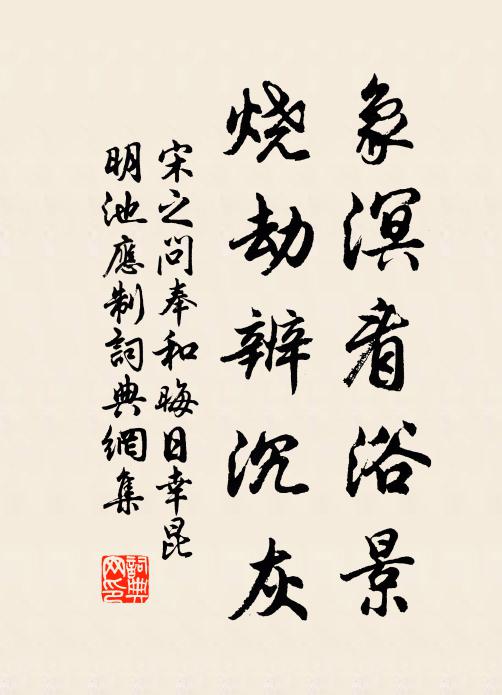 象溟看浴景
烧劫辨沉灰
宋之问奉和晦日幸昆
明池應制詞典網集
詞典网印